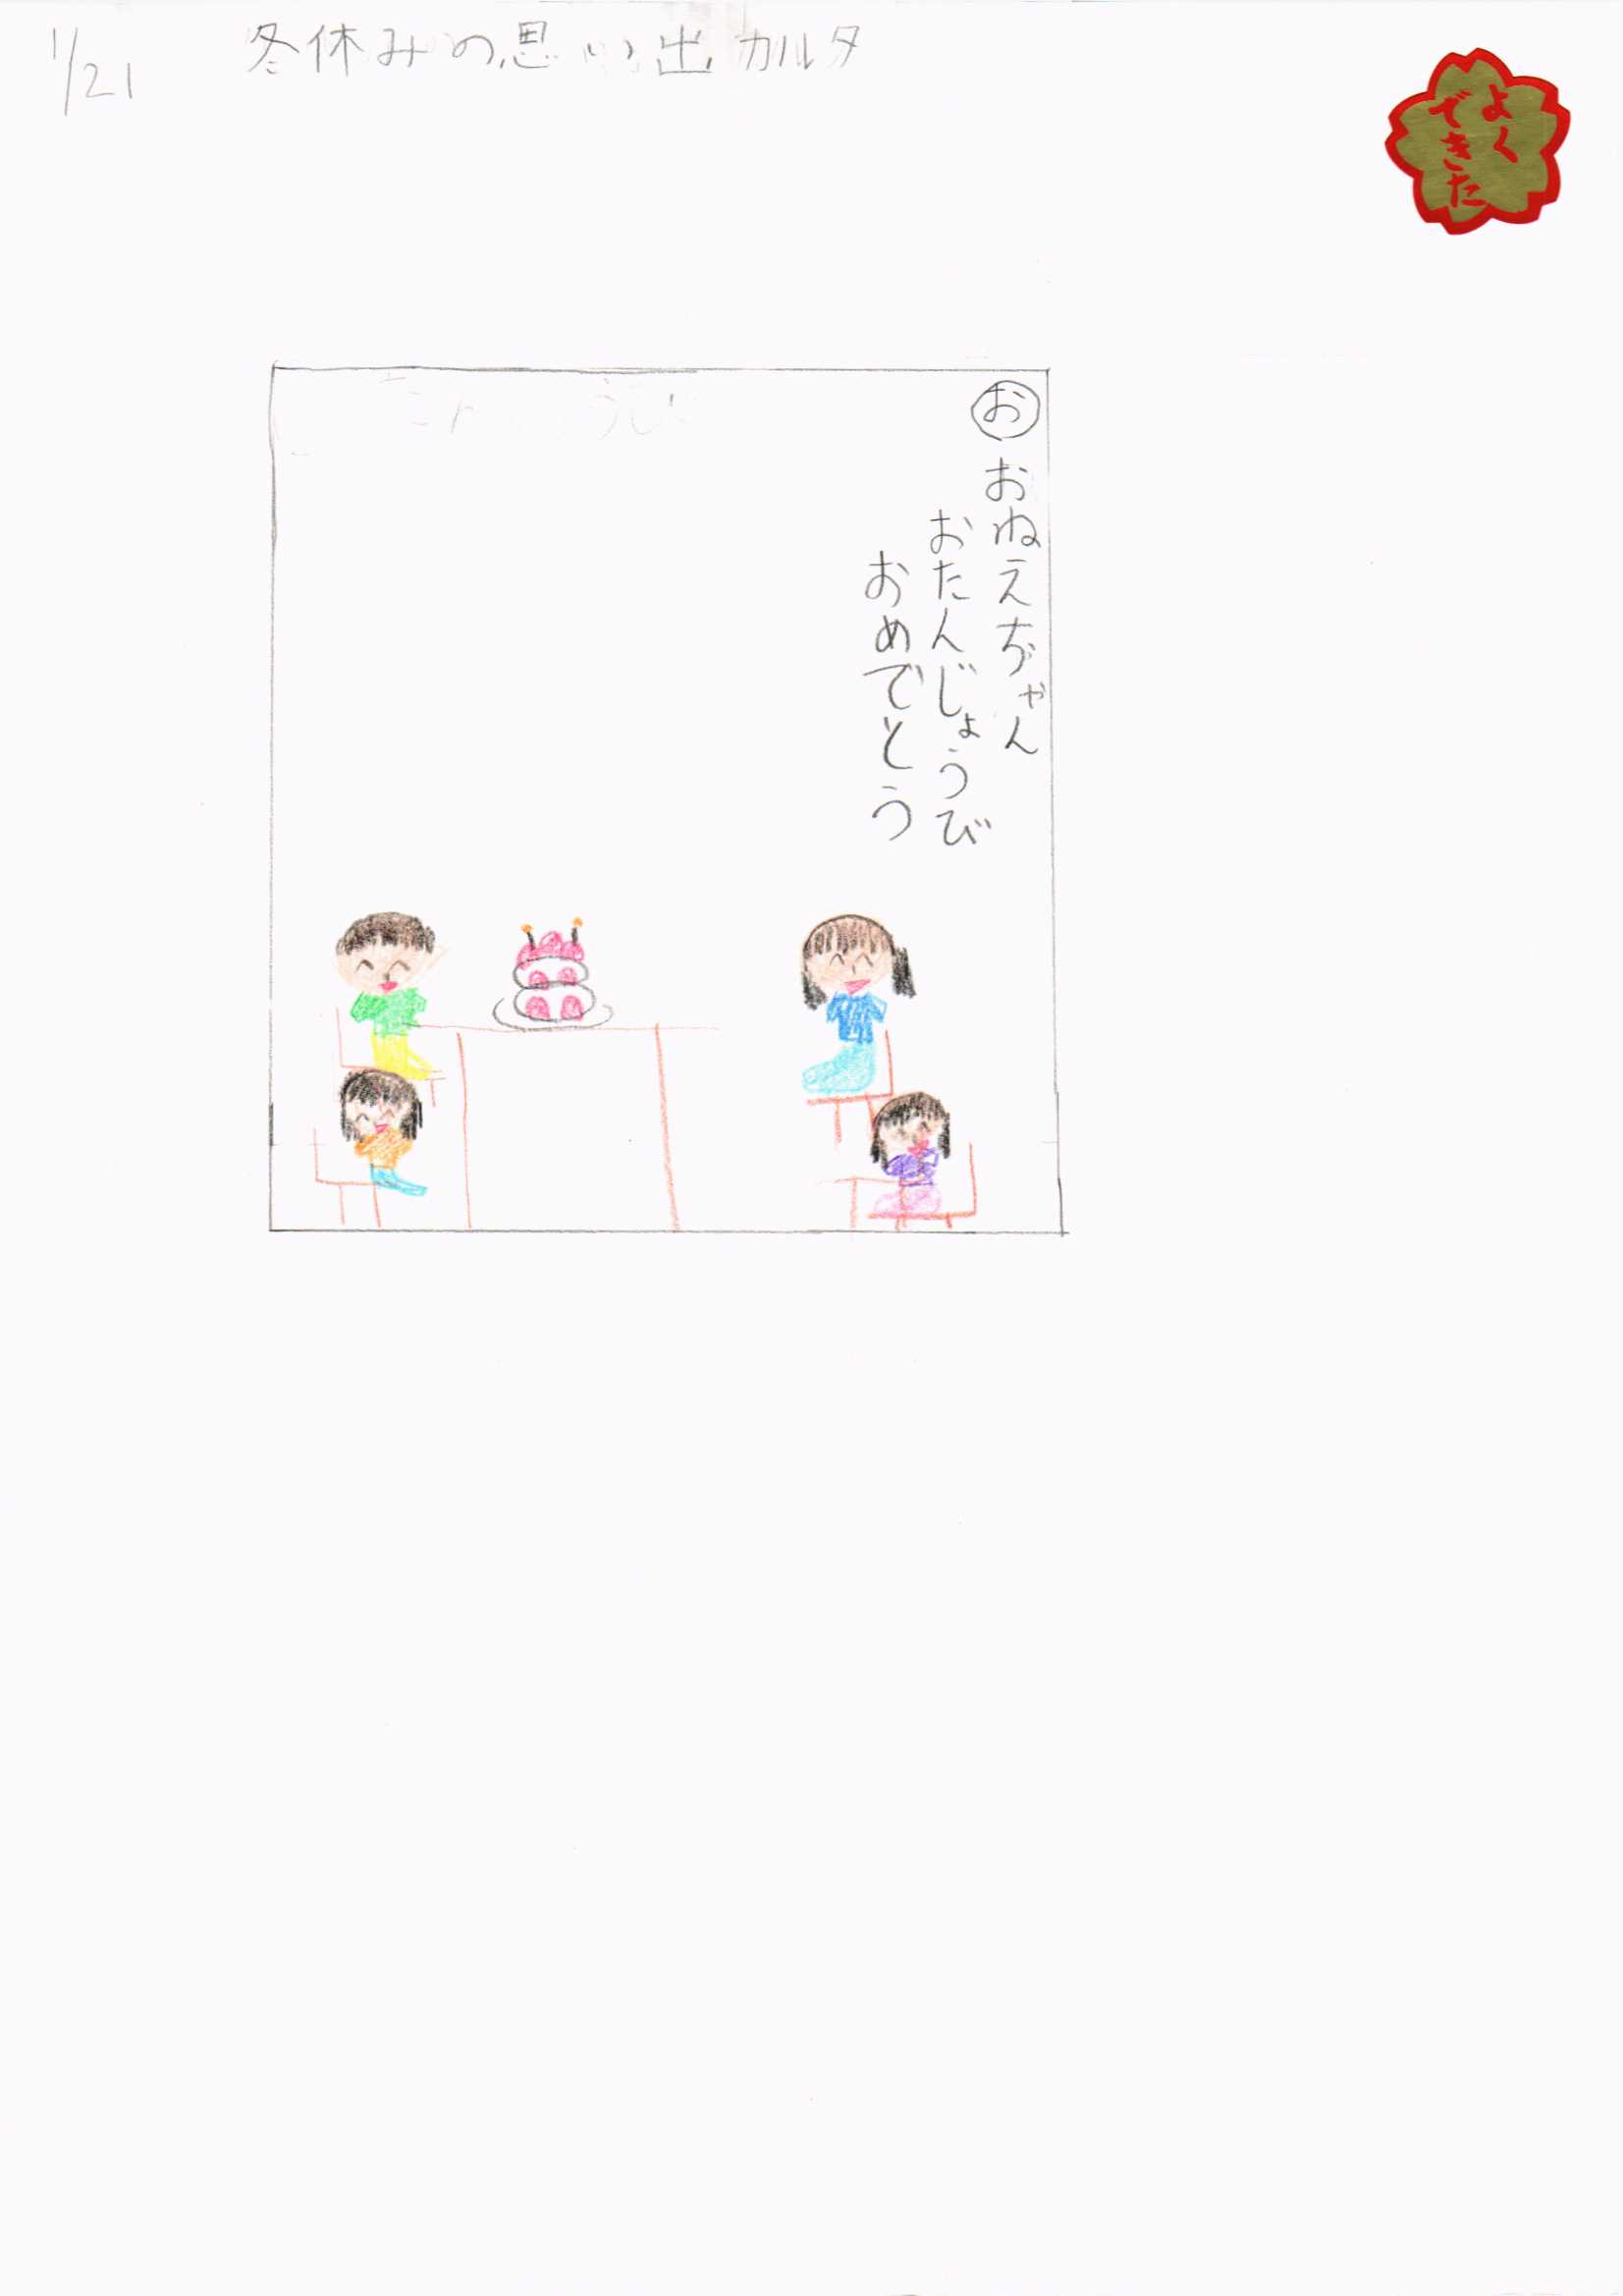 1/21
冬休みの思い出カルタ
よく
できた
お
おねえぢゃん
おたんじょうび
おめでとう